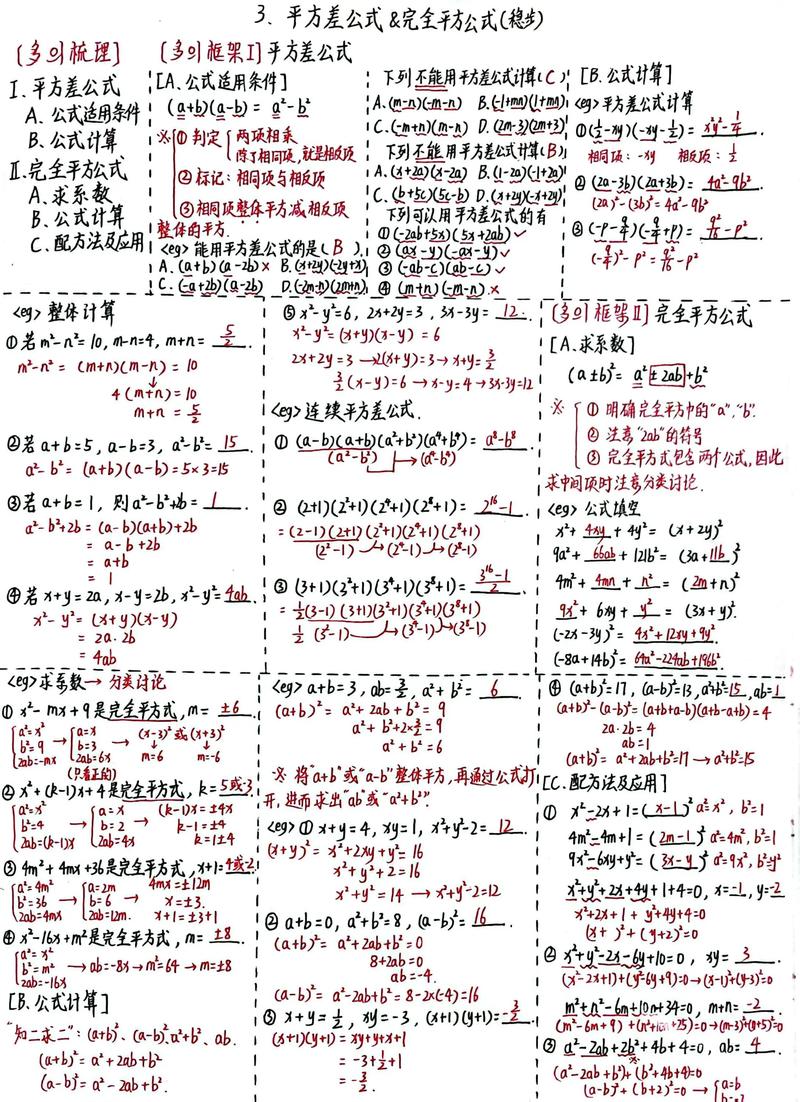 3、平方差公式 &完全平方公式(稳步)
[多の梳理]
I、平方差公式
A、公式适用条件
B、公式计算
II、完全平方公式
A、求系数
B、公式计算
C、配方法及应用
[多の框架I] 平方差公式
[A、公式适用条件]
(a+b)(a-b) = a²-b²
※ ① 判定 { 两项相乘
除了相同项,就是相反项
② 标记:相同项与相反项
③ 相同项整体平方减相反项
整体的平方.
<eg> 能用平方差公式的是( B ).
A、(a+b)(a-2b)× B、(x+2y)(-2y+x)
C、(-a+2b)(a-2b) D、(-2m-n)(2m+n)
下列不能用平方差公式计算( C )
A、(m-n)(-m-n) B、(-1+mn)(1+mn)
C、(-m+n)(m-n) D、(2m-3)(2m+3)
下列不能用平方差公式计算( B )
A、(x+2a)(x-2a) B、(1-2a)(-1+2a)
C、(b+5c)(5c-b) D、(x+2y)(-x+2y)
下列可以用平方差公式的有
① (-2ab+5x)(5x+2ab) ✓
② (ax-y)(-ax-y) ✓
③ (-ab-c)(ab-c) ✓
④ (m+n)(-m-n) ×
[B、公式计算]
<eg>平方差公式计算
① (½-xy)(-xy-½) = x²y²-¼.
相同项:-xy 相反项:½
② (2a-3b)(2a+3b) = 4a²-9b².
(2a)²-(3b)²=4a²-9b²
<eg> 整体计算
① 若 m²-n²=10, m-n=4, m+n= 5/2.
m²-n² = (m+n)(m-n) = 10
4(m+n)=10
m+n = 5/2
② 若 a+b=5, a-b=3, a²-b²= 15.
a²-b² = (a+b)(a-b)=5×3=15
③ 若 a+b=1, 则 a²-b²+2b= 1.
a²-b²+2b = (a-b)(a+b)+2b
= a-b+2b
= a+b
= 1
④ 若 x+y=2a, x-y=2b, x²-y²= 4ab.
x²-y² = (x+y)(x-y)
= 2a·2b
= 4ab
⑤ x²-y²=6, 2x+2y=3, 3x-3y= 12.
x²-y²=(x+y)(x-y) = 6
2x+2y=3 →2(x+y)=3→x+y=3/2
3/2(x-y)=6→x-y=4→3x-3y=12
<eg> 连续平方差公式.
① (a-b)(a+b)(a²+b²)(a⁴+b⁴)= a⁸-b⁸
(a²-b²) → (a⁴-b⁴)
② (2+1)(2²+1)(2⁴+1)(2⁸+1)= 2¹⁶-1
= (2-1)(2+1)(2²+1)(2⁴+1)(2⁸+1)
(2²-1)→(2⁴-1)→(2⁸-1)
③ (3+1)(3²+1)(3⁴+1)(3⁸+1)= (3¹⁶-1)/2.
= ½(3-1)(3+1)(3²+1)(3⁴+1)(3⁸+1)
½ (3²-1)→(3⁴-1)→(3⁸-1)
[多の框架II] 完全平方公式
[A、求系数]
(a±b)² = a²±2ab+b²
※ ① 明确完全平方中的"a","b".
② 注意"2ab"的符号
③ 完全平方式包含两个公式,因此
求中间项时注意分类讨论.
<eg> 公式填空
x²+ 4xy + 4y² = (x+2y)²
9a²+ 66ab + 121b² = (3a+11b)²
4m²+ 4mn + n² = (2m+n)²
9x² + 6xy + y² = (3x+y)².
(-2x-3y)² = 4x²+12xy+9y².
(-8a+14b)² = 64a²-224ab+196b²
<eg>求系数→ 分类讨论
① x²-mx+9是完全平方式, m= ±6.
{ a²=x²
b²=9
2ab=-mx
→ { a=x
b=3
2ab=6x
→ (x-3)² 或 (x+3)²
m=6 m=-6
(只看正的)
② x²+(k-1)x+4是完全平方式, k=5或-3.
{ a²=x²
b²=4
2ab=(k-1)x
→ { a=x
b=2
2ab=4x
→ (k-1)x=±4x
k-1=±4
k=1±4
③ 4m²+4mx+36是完全平方式, x+1=4或-2
{ a²=4m²
b²=36
2ab=4mx
→ { a=2m
b=6
2ab=12m.
→ 4mx=±12m
x=±3.
x+1=±3+1
④ x²-16x+m²是完全平方式, m= ±8.
{ a²=x²
b²=m²
2ab=-16x
→ab=-8x→m²=64→m=±8
[B、公式计算]
"知二求二": (a+b)²、(a-b)²、a²+b²、ab.
(a+b)²=a²+2ab+b²
(a-b)²=a²-2ab+b².
<eg> a+b=3, ab=3/2, a²+b²= 6.
(a+b)² = a²+2ab+b² = 9
a²+b²+2×3/2=9
a²+b²=6
※ 将"a+b"或"a-b"整体平方,再通过公式打
开,进而求出"ab"或"a²+b²".
<eg>① x+y=4, xy=1, x²+y²-2= 12.
(x+y)² = x²+2xy+y²=16
x²+y²+2=16
x²+y²=14 → x²+y²-2=12
② a+b=0, a²+b²=8, (a-b)²= 16.
(a+b)² = a²+2ab+b²=0
8+2ab=0
ab=-4.
(a-b)² = a²-2ab+b²=8-2×(-4)=16
③ x+y=½, xy=-3, (x+1)(y+1)=-3/2.
(x+1)(y+1) = xy+y+x+1
= -3+½+1
= -3/2.
④ (a+b)²=17, (a-b)²=13, a²+b²=15, ab=1
(a+b)²-(a-b)²=(a+b+a-b)(a+b-a+b)=4
2a·2b=4
ab=1
(a+b)²=a²+2ab+b²=17→a²+b²=15
[C、配方法及应用]
① x²-2x+1=( x-1 )² a²=x², b²=1
4m²-4m+1=( 2m-1 )² a²=4m², b²=1
9x²-6xy+y²=( 3x-y )² a²=9x², b²=y²
x²+y²+2x+4y+1+4=0, x=-1, y=-2
x²+2x+1+y²+4y+4=0
(x+ )²+(y+2)²=0
② x²+y²-2x-6y+10=0, xy= 3.
(x²-2x+1)+(y²-6y+9)=0→(x-1)²+(y-3)²=0
m²+n²-6m+10n+34=0, m+n= -2.
(m²-6m+9)+(n²+10n+25)=0→(m-3)²+(n+5)²=0
③ a²-2ab+2b²+4b+4=0, ab= 4.
(a²-2ab+b²)+(b²+4b+4)=0
(a-b)²+(b+2)²=0 → { a=b